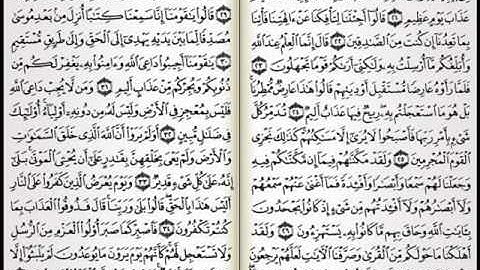 عَذَابَ يَوْمٍ عَظِيمٍ ٢١ قَالُوٓا۟ أَجِئْتَنَا لِتَأْفِكَنَا عَنْ ءَالِهَتِنَا فَأْتِنَا
بِمَا تَعِدُنَآ إِن كُنتَ مِنَ ٱلصَّـٰدِقِينَ ٢٢ قَالَ إِنَّمَا ٱلْعِلْمُ عِندَ ٱللَّهِ
وَأُبَلِّغُكُم مَّآ أُرْسِلْتُ بِهِۦ وَلَـٰكِنِّىٓ أَرَىٰكُمْ قَوْمًا تَجْهَلُونَ ٢٣
فَلَمَّا رَأَوْهُ عَارِضًا مُّسْتَقْبِلَ أَوْدِيَتِهِمْ قَالُوا۟ هَـٰذَا عَارِضٌ مُّمْطِرُنَا
بَلْ هُوَ مَا ٱسْتَعْجَلْتُم بِهِۦ رِيحٌ فِيهَا عَذَابٌ أَلِيمٌ ٢٤ تُدَمِّرُ كُلَّ
شَىْءٍۭ بِأَمْرِ رَبِّهَا فَأَصْبَحُوا۟ لَا يُرَىٰٓ إِلَّا مَسَـٰكِنُهُمْ كَذَٰلِكَ نَجْزِى
ٱلْقَوْمَ ٱلْمُجْرِمِينَ ٢٥ وَلَقَدْ مَكَّنَّـٰهُمْ فِيمَآ إِن مَّكَّنَّـٰكُمْ فِيهِ
وَجَعَلْنَا لَهُمْ سَمْعًا وَأَبْصَـٰرًا وَأَفْـِٔدَةً فَمَآ أَغْنَىٰ عَنْهُمْ سَمْعُهُمْ
وَلَآ أَبْصَـٰرُهُمْ وَلَآ أَفْـِٔدَتُهُم مِّن شَىْءٍ إِذْ كَانُوا۟ يَجْحَدُونَ
بِـَٔايَـٰتِ ٱللَّهِ وَحَاقَ بِهِم مَّا كَانُوا۟ بِهِۦ يَسْتَهْزِءُونَ ٢٦ وَلَقَدْ
أَهْلَكْنَا مَا حَوْلَكُم مِّنَ ٱلْقُرَىٰ وَصَرَّفْنَا ٱلْـَٔايَـٰتِ لَعَلَّهُمْ يَرْجِعُونَ
٢٩ قَالُوا۟ يَـٰقَوْمَنَآ إِنَّا سَمِعْنَا كِتَـٰبًا أُنزِلَ مِنۢ بَعْدِ مُوسَىٰ
مُصَدِّقًا لِّمَا بَيْنَ يَدَيْهِ يَهْدِىٓ إِلَى ٱلْحَقِّ وَإِلَىٰ طَرِيقٍ مُّسْتَقِيمٍ
٣٠ يَـٰقَوْمَنَآ أَجِيبُوا۟ دَاعِىَ ٱللَّهِ وَءَامِنُوا۟ بِهِۦ يَغْفِرْ لَكُم مِّن
ذُنُوبِكُمْ وَيُجِرْكُم مِّنْ عَذَابٍ أَلِيمٍ ٣١ وَمَن لَّا يُجِبْ دَاعِىَ ٱللَّهِ
فَلَيْسَ بِمُعْجِزٍ فِى ٱلْأَرْضِ وَلَيْسَ لَهُۥ مِن دُونِهِۦٓ أَوْلِيَآءُ أُو۟لَـٰٓئِكَ
فِى ضَلَـٰلٍ مُّبِينٍ ٣٢ أَوَلَمْ يَرَوْا۟ أَنَّ ٱللَّهَ ٱلَّذِى خَلَقَ ٱلسَّمَـٰوَٰتِ
وَٱلْأَرْضَ وَلَمْ يَعْىَ بِخَلْقِهِنَّ بِقَـٰدِرٍ عَلَىٰٓ أَن يُحْـِۧىَ ٱلْمَوْتَىٰ بَلَىٰٓ
إِنَّهُۥ عَلَىٰ كُلِّ شَىْءٍ قَدِيرٌ ٣٣ وَيَوْمَ يُعْرَضُ ٱلَّذِينَ كَفَرُوا۟ عَلَى ٱلنَّارِ
أَلَيْسَ هَـٰذَا بِٱلْحَقِّ قَالُوا۟ بَلَىٰ وَرَبِّنَا قَالَ فَذُوقُوا۟ ٱلْعَذَابَ بِمَا
كُنتُمْ تَكْفُرُونَ ٣٤ فَٱصْبِرْ كَمَا صَبَرَ أُو۟لُوا۟ ٱلْعَزْمِ مِنَ ٱلرُّسُلِ
وَلَا تَسْتَعْجِل لَّهُمْ كَأَنَّهُمْ يَوْمَ يَرَوْنَ مَا يُوعَدُونَ لَمْ يَلْبَثُوٓا۟ إِلَّا